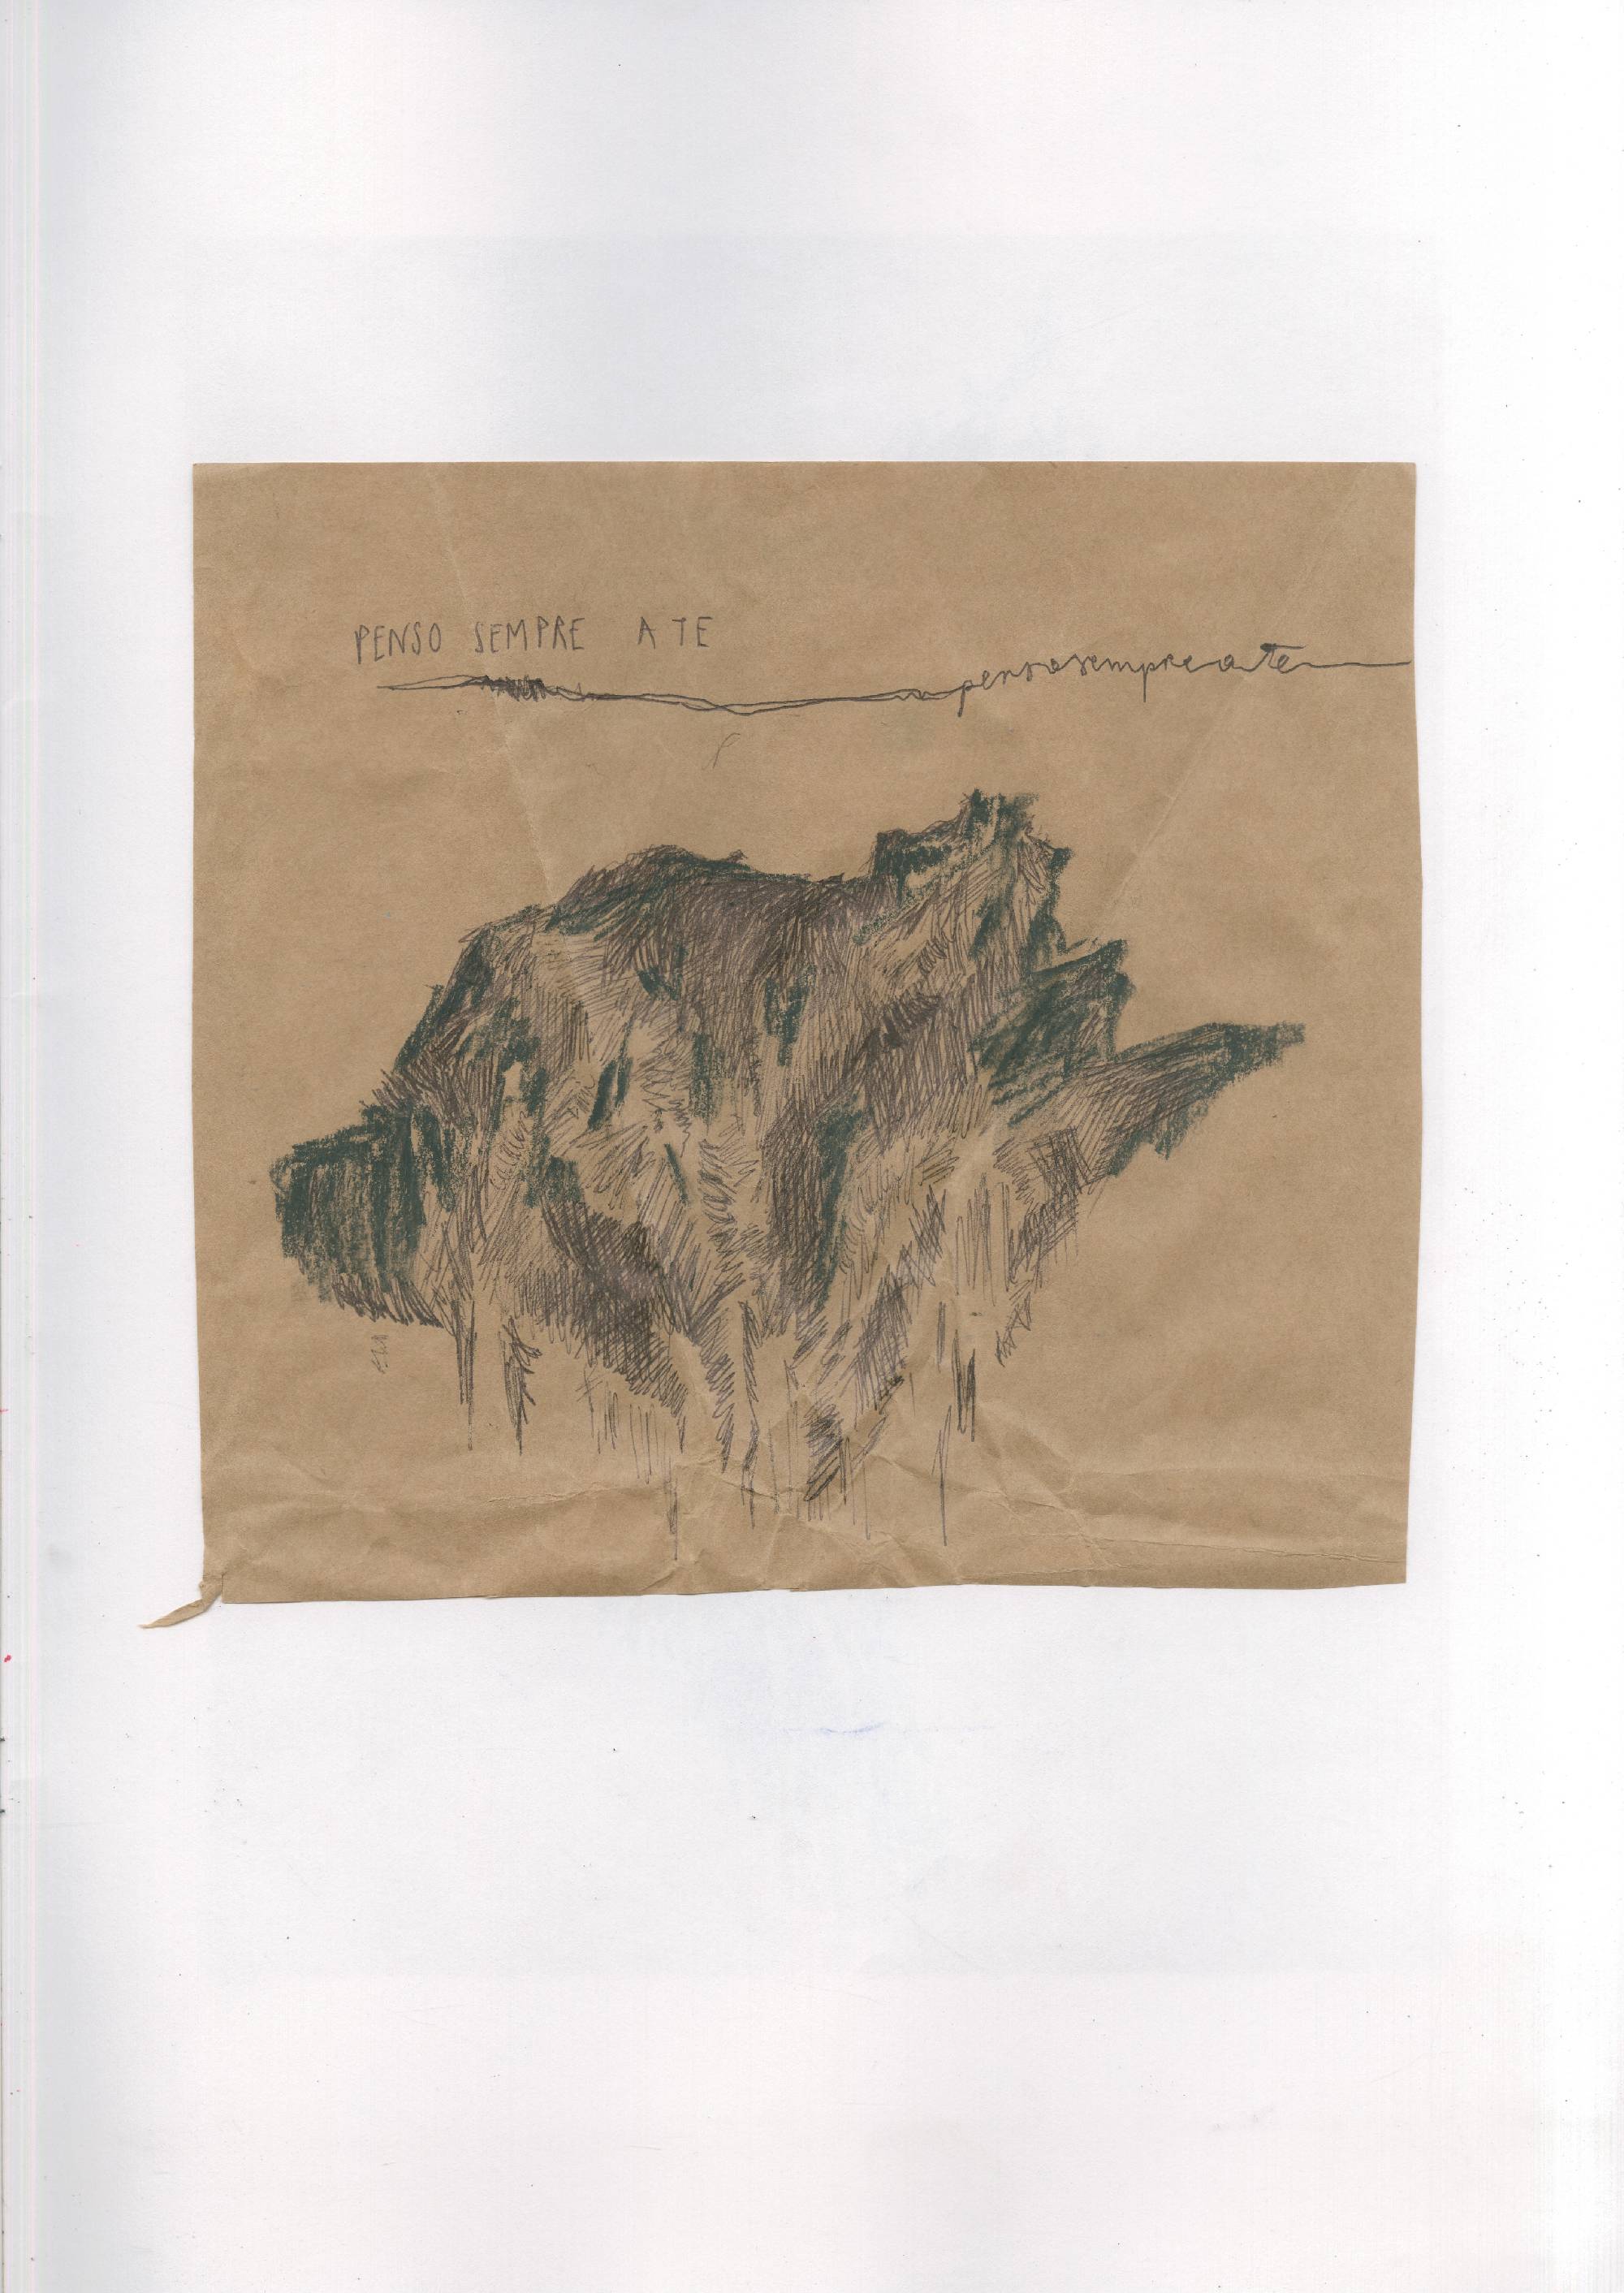 PENSO SEMPRE A TE
pensosempreate